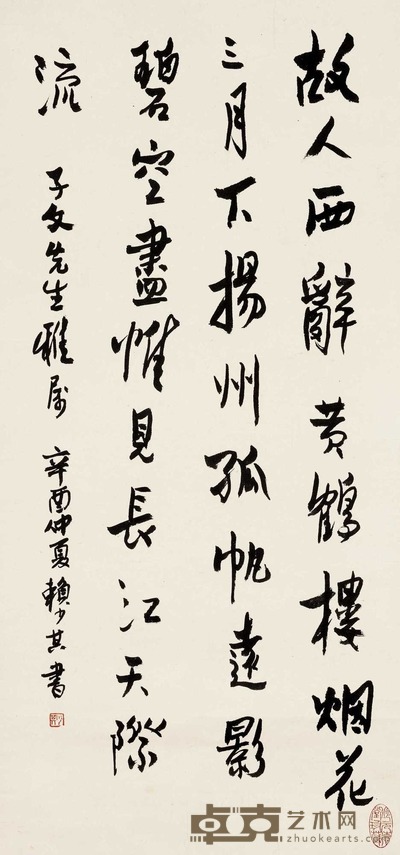 故人西辭黃鶴樓烟花
三月下揚州孤帆遠影
碧空盡惟見長江天際
流
子文先生雅屬 辛酉仲夏賴少其書
卓克艺术网
zhuokearts.com